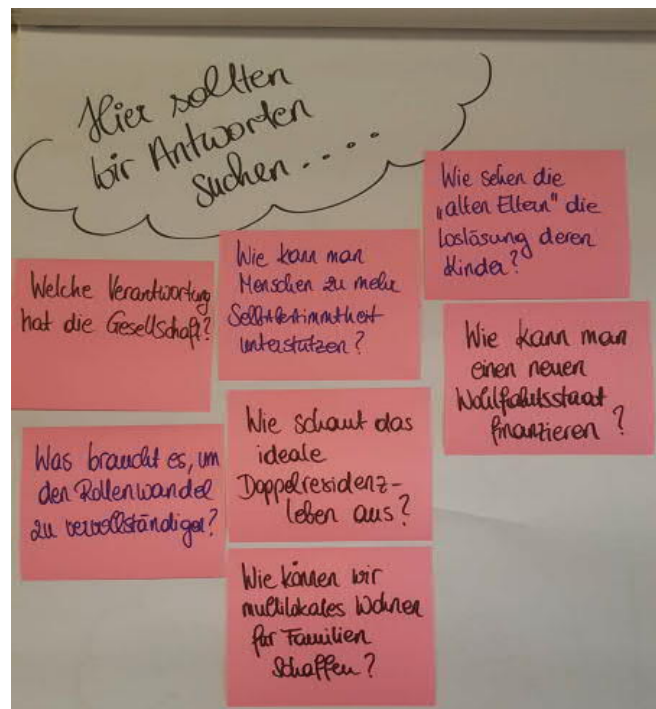 Hier sollten
wir Antworten
suchen....
Wie sehen die
„alten Eltern" die
Loslösung deren
Kinder?
Wie kann man
Menschen zu mehr
Selbstbestimmtheit
unterstützen?
Welche Verantwortung
hat die Gesellschaft?
Wie kann man
einen neuen
Wohlfahrtsstaat
finanzieren?
Wie schaut das
ideale
Doppelresidenz-
leben aus?
Was braucht es, um
den Rollenwandel
zu vervollständigen?
Wie können wir
multilokales Wohnen
für Familien
schaffen?